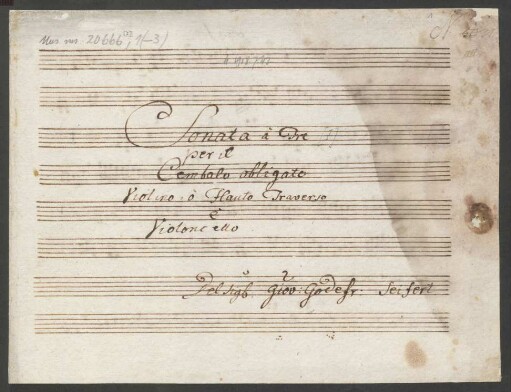 Mus ms 20666
Sonata à Tre
per il
Cembalo obligato
Violino ò Flauto Traverso
è
Violoncello
Del Sigr Giov: Godefr: Seifert